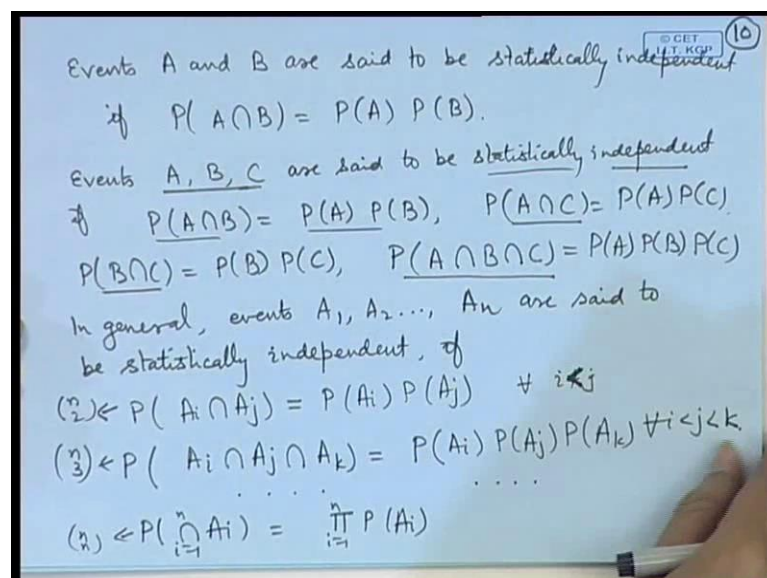 © CET
I.I.T. KGP
10
Events A and B are said to be statistically independent
if P( A ∩ B) = P(A) P(B).
Events A, B, C are said to be statistically independent
if P(A∩B) = P(A) P(B), P(A∩C) = P(A)P(C).
P(B∩C) = P(B) P(C), P(A∩B∩C) = P(A)P(B)P(C)
In general, events A₁, A₂ ..., Aₙ are said to
be statistically independent, if
(n 2) ← P( Ai ∩ Aj) = P(Ai) P(Aj) ∀ i<j
(n 3) ← P( Ai ∩ Aj ∩ Ak) = P(Ai) P(Aj) P(Ak) ∀ i<j<k.
. . . . . . . .
(n n) ← P(⋂ⁿᵢ₌₁ Ai) = ∏ⁿᵢ₌₁ P(Ai)